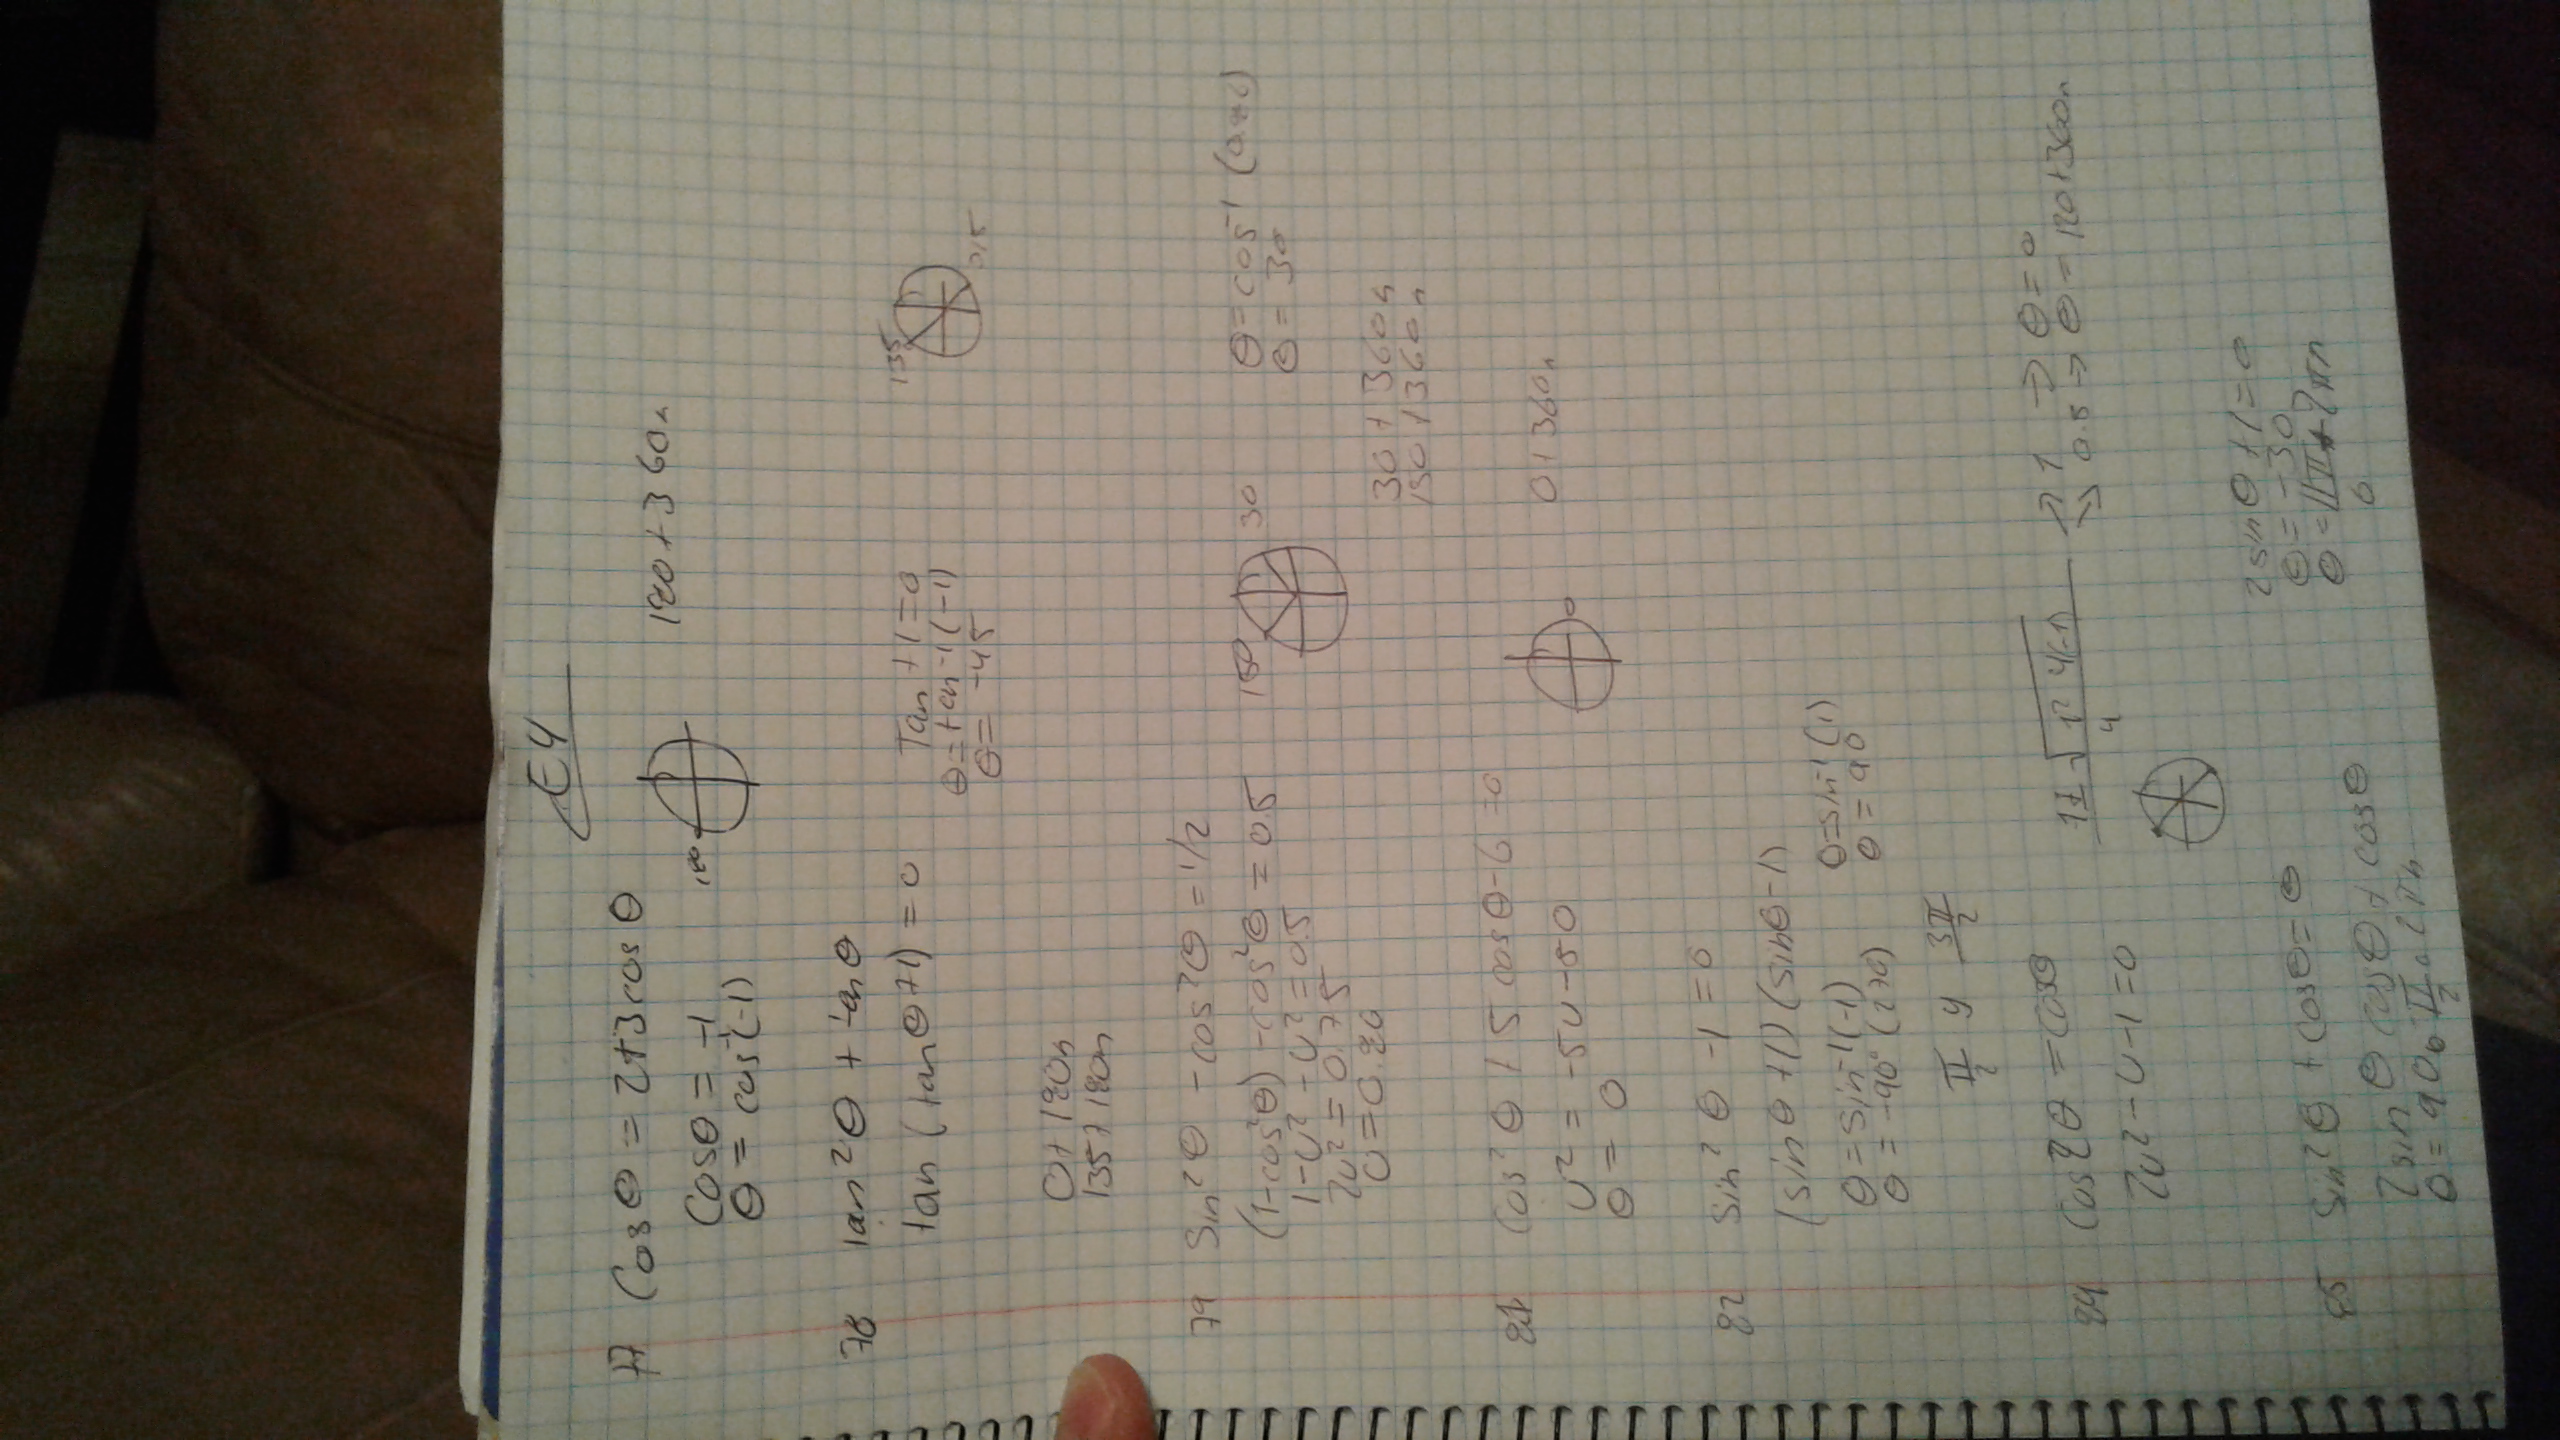 E4
77 Cosθ = 2+3cosθ
180+360n
Cosθ = -1
180
θ = cos⁻¹(-1)
78 tan²θ + tanθ
tan(tanθ+1) = 0
Tan+1=0
θ=tan-1(-1)
θ= -45
135
315
0+180n
135+180n
79 Sin²θ - cos²θ = 1/2
(1-cos²θ) - cos²θ = 0.5
1-u² - u² = 0.5
2u² = 0.75
150
30
θ=cos⁻¹
θ = 30
30+360n
150+360n
81 Cos²θ + 5cosθ-6=0
θ = 0
0
0+360n
82 sin²θ -1 = 0
(sinθ+1)(sinθ-1)
θ=sin⁻¹(-1)
θ = -90° (270)
θ=sin⁻¹(1)
θ = 90
π/2 y 3π/2
84 Cos2θ = cosθ
2u²-u-1=0
→ 1 → θ=0
→ 0.5 → θ=120+360n
85 sin2θ + cosθ=0
2sinθcosθ + cosθ
2sinθ+1=0
θ = -30
θ = 11π/6 + 2πn